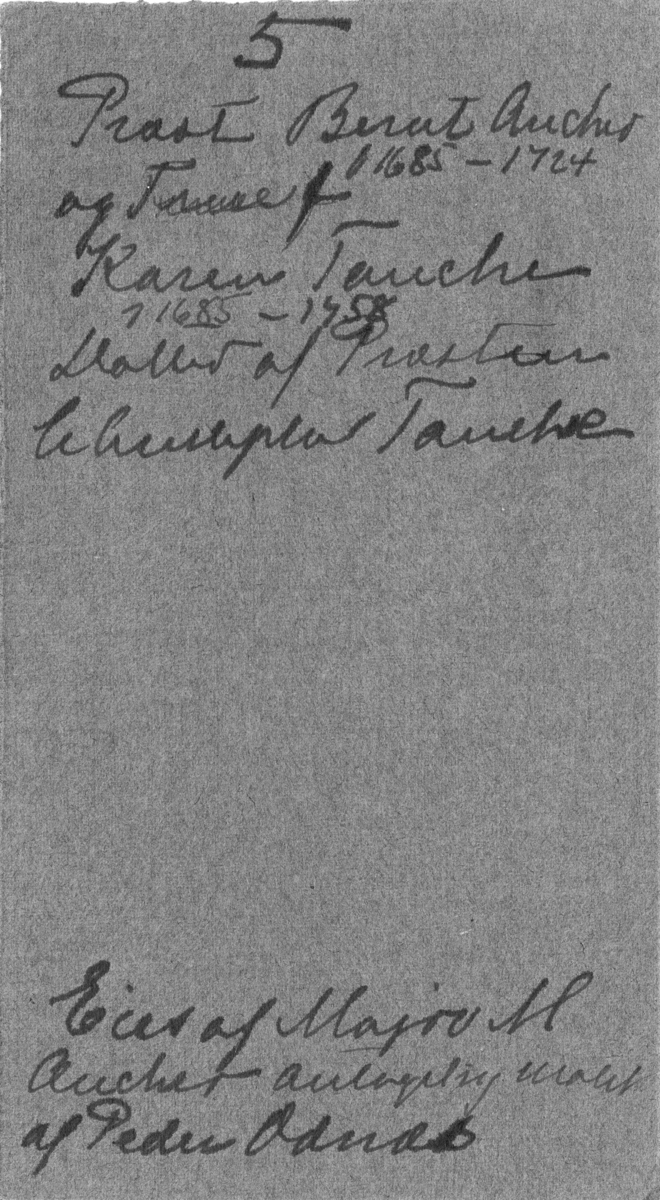 5
Præst Bernt Ancher
1685 – 1724
og Frue f
Karen Tanche
1685 – 1758
Datter af Præsten
Christopher Tanche
Eies af Major M
Ancher antagelig malt
af Peder Odnæs